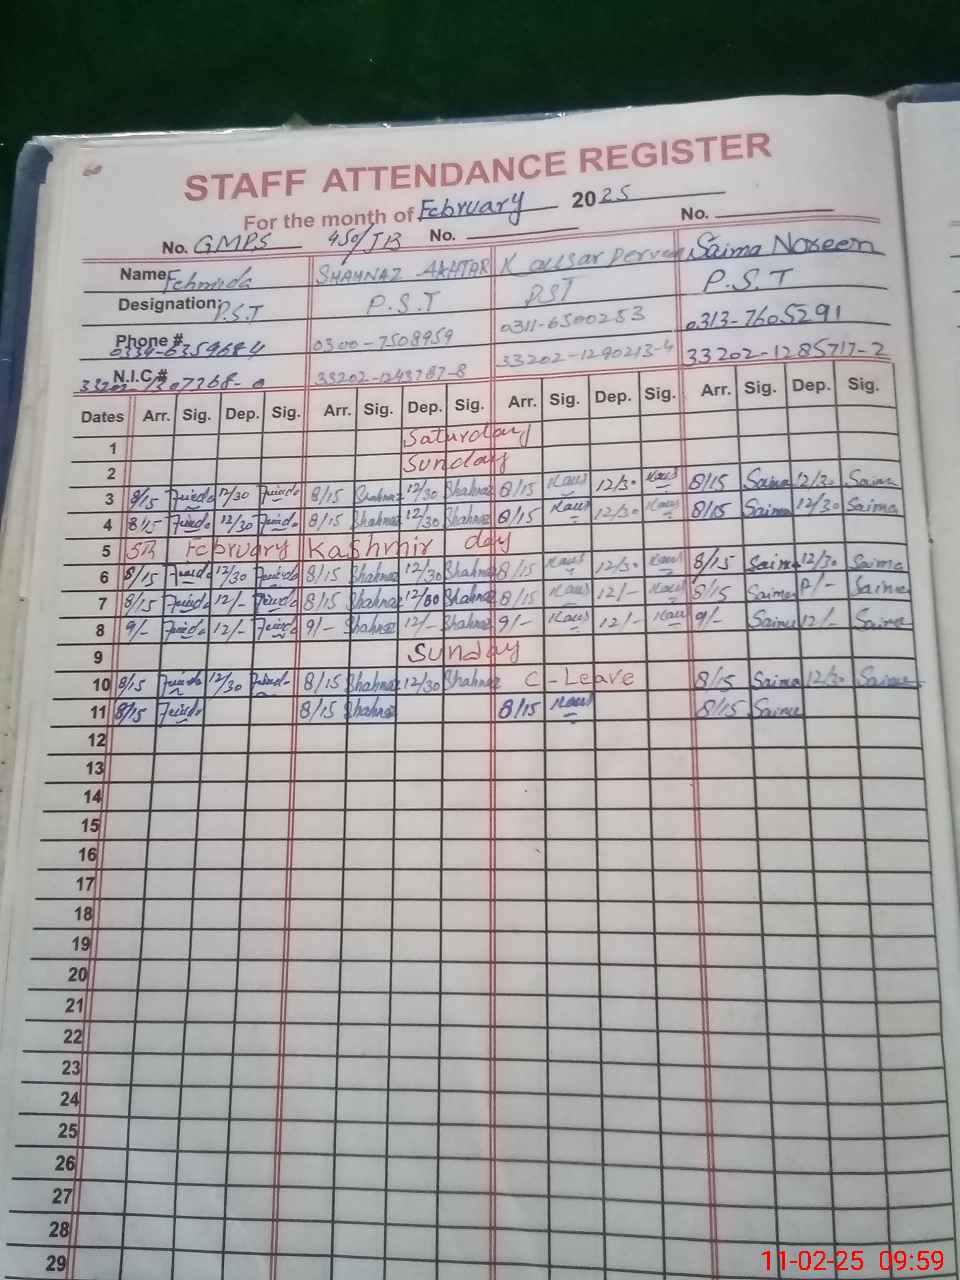 60
STAFF ATTENDANCE REGISTER
For the month of February 2025
No. GMPS 450/JB No. No.
Name Fehmida SHAHNAZ AKHTAR Kausar Perveen Saima Noreen
Designation: P.S.T P.S.T PST P.S.T
Phone # 0300-7508959 0311-6500253 0313-7605291
N.I.C.# 33202-1243787-8 33202-1290213-4 33202-1285717-2
Dates Arr. Sig. Dep. Sig. Arr. Sig. Dep. Sig. Arr. Sig. Dep. Sig. Arr. Sig. Dep. Sig.
1 Saturday
2 Sunday
3 8/15 12/30 8/15 Shahnaz 12/30 Shahnaz 8/15 Kaus 12/30 Kaus 8/15 Saima 12/30 Saima
4 8/15 12/30 8/15 Shahnaz 12/30 Shahnaz 8/15 Kaus 12/30 Kaus 8/15 Saima 12/30 Saima
5 5th February Kashmir day
6 8/15 12/30 8/15 Shahnaz 12/30 Shahnaz 8/15 Kaus 12/30 Kaus 8/15 Saima 12/30 Saima
7 8/15 12/- 8/15 Shahnaz Shahnaz 8/15 Kaus 12/- Kaus 8/15 Saima Saima
8 9/- 12/- 9/- Shahnaz 12/- Shahnaz 9/- Kaus 12/- Kaus 9/- Saima 12/- Saima
9 Sunday
10 8/15 12/30 8/15 Shahnaz 12/30 Shahnaz C-Leave 8/15 Saima 12/30 Saima
11 8/15 8/15 Shahnaz 8/15 Kaus 8/15 Saima
12
13
14
15
16
17
18
19
20
21
22
23
24
25
26
27
28
29
11-02-25 09:59